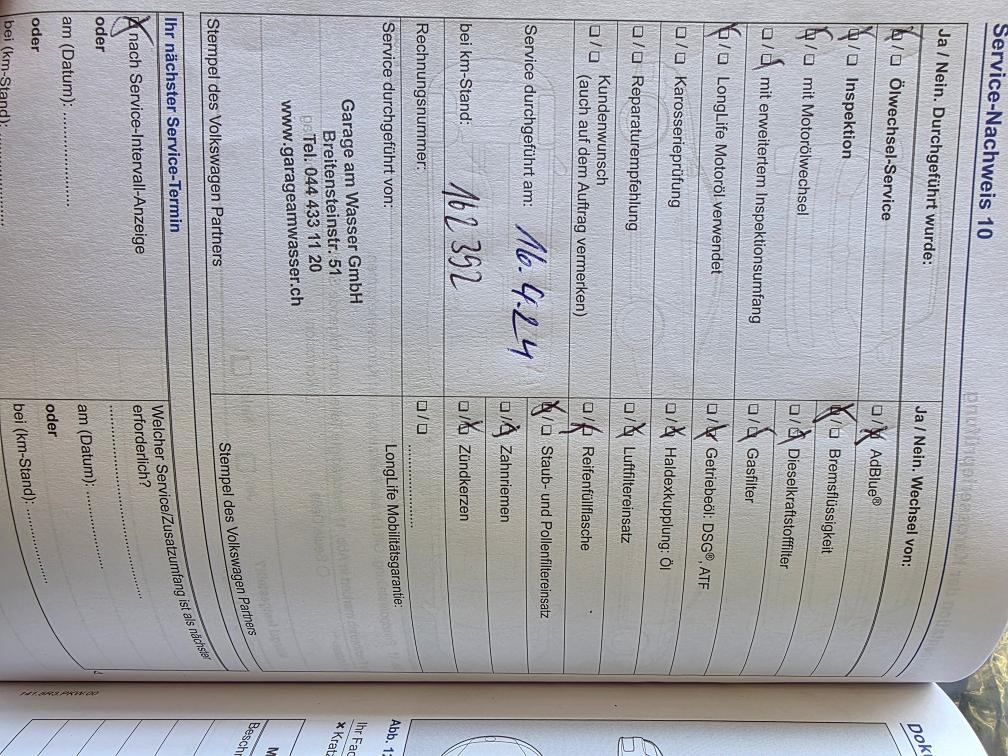 Service-Nachweis 10
Ja / Nein. Durchgeführt wurde:
☒ / ☐ Ölwechsel-Service
☒ / ☐ Inspektion
☒ / ☐ mit Motorölwechsel
☐ / ☒ mit erweitertem Inspektionsumfang
☒ / ☐ LongLife Motoröl verwendet
☐ / ☐ Karosserieprüfung
☐ / ☐ Reparaturempfehlung
☐ / ☐ Kundenwunsch
(auch auf dem Auftrag vermerken)
Service durchgeführt am: 16.4.24
bei km-Stand: 162 392
Rechnungsnummer:
Service durchgeführt von:
Garage am Wasser GmbH
Breitensteinstr. 51
Tel. 044 433 11 20
www.garageamwasser.ch
Stempel des Volkswagen Partners
Ja / Nein. Wechsel von:
☐ / ☒ AdBlue®
☒ / ☐ Bremsflüssigkeit
☐ / ☒ Dieselkraftstofffilter
☐ / ☒ Gasfilter
☐ / ☒ Getriebeöl: DSG®, ATF
☐ / ☒ Haldexkupplung: Öl
☐ / ☒ Luftfiltereinsatz
☐ / ☒ Reifenfüllflasche
☒ / ☐ Staub- und Pollenfiltereinsatz
☐ / ☒ Zahnriemen
☐ / ☒ Zündkerzen
☐ / ☐ ....................
LongLife Mobilitätsgarantie:
Stempel des Volkswagen Partners
Ihr nächster Service-Termin
☒ nach Service-Intervall-Anzeige
oder
am (Datum): ....................
oder
bei (km-Stand): ....................
Welcher Service/Zusatzumfang ist als nächster
erforderlich?
........................................
am (Datum): ....................
oder
bei (km-Stand): ....................
141.5R3.PKW.00
Abb. 1
Ihr Fac
x Kratz
Besch